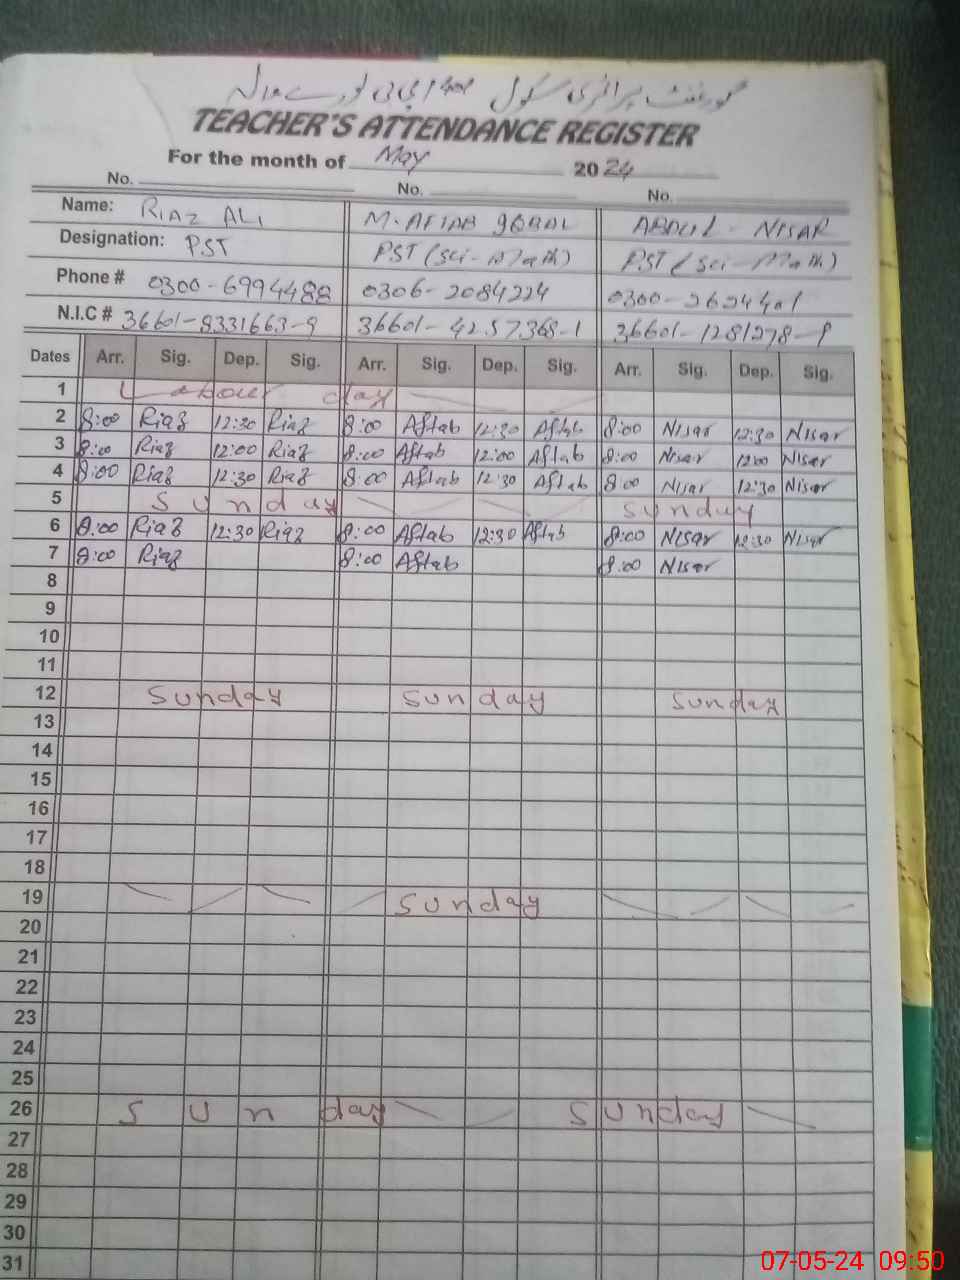 گورنمنٹ پرائمری سکول
TEACHER'S ATTENDANCE REGISTER
For the month of May 2024
No. No. No.
Name: RIAZ ALI M. AFTAB IQBAL ABDUL - NISAR
Designation: PST PST (Sci-Math) PST (Sci-Math)
Phone # 0300-6994488 0306-2084224 0300-2624401
N.I.C # 36601-8331663-9 36601-4257368-1 36601-1281278-9
Dates Arr. Sig. Dep. Sig. Arr. Sig. Dep. Sig. Arr. Sig. Dep. Sig.
1 Labour day
2 8:00 Riaz 12:30 Riaz 8:00 Aftab 12:30 Aftab 8:00 Nisar 12:30 Nisar
3 8:00 Riaz 12:00 Riaz 8:00 Aftab 12:00 Aftab 8:00 Nisar 12:00 Nisar
4 8:00 Riaz 12:30 Riaz 8:00 Aftab 12:30 Aftab 8:00 Nisar 12:30 Nisar
5 Sunday Sunday
6 8:00 Riaz 12:30 Riaz 8:00 Aftab 12:30 Aftab 8:00 Nisar 12:30 Nisar
7 8:00 Riaz 8:00 Aftab 8:00 Nisar
8
9
10
11
12 Sunday Sunday Sunday
13
14
15
16
17
18
19 Sunday
20
21
22
23
24
25
26 Sunday Sunday
27
28
29
30
31
07-05-24 09:50